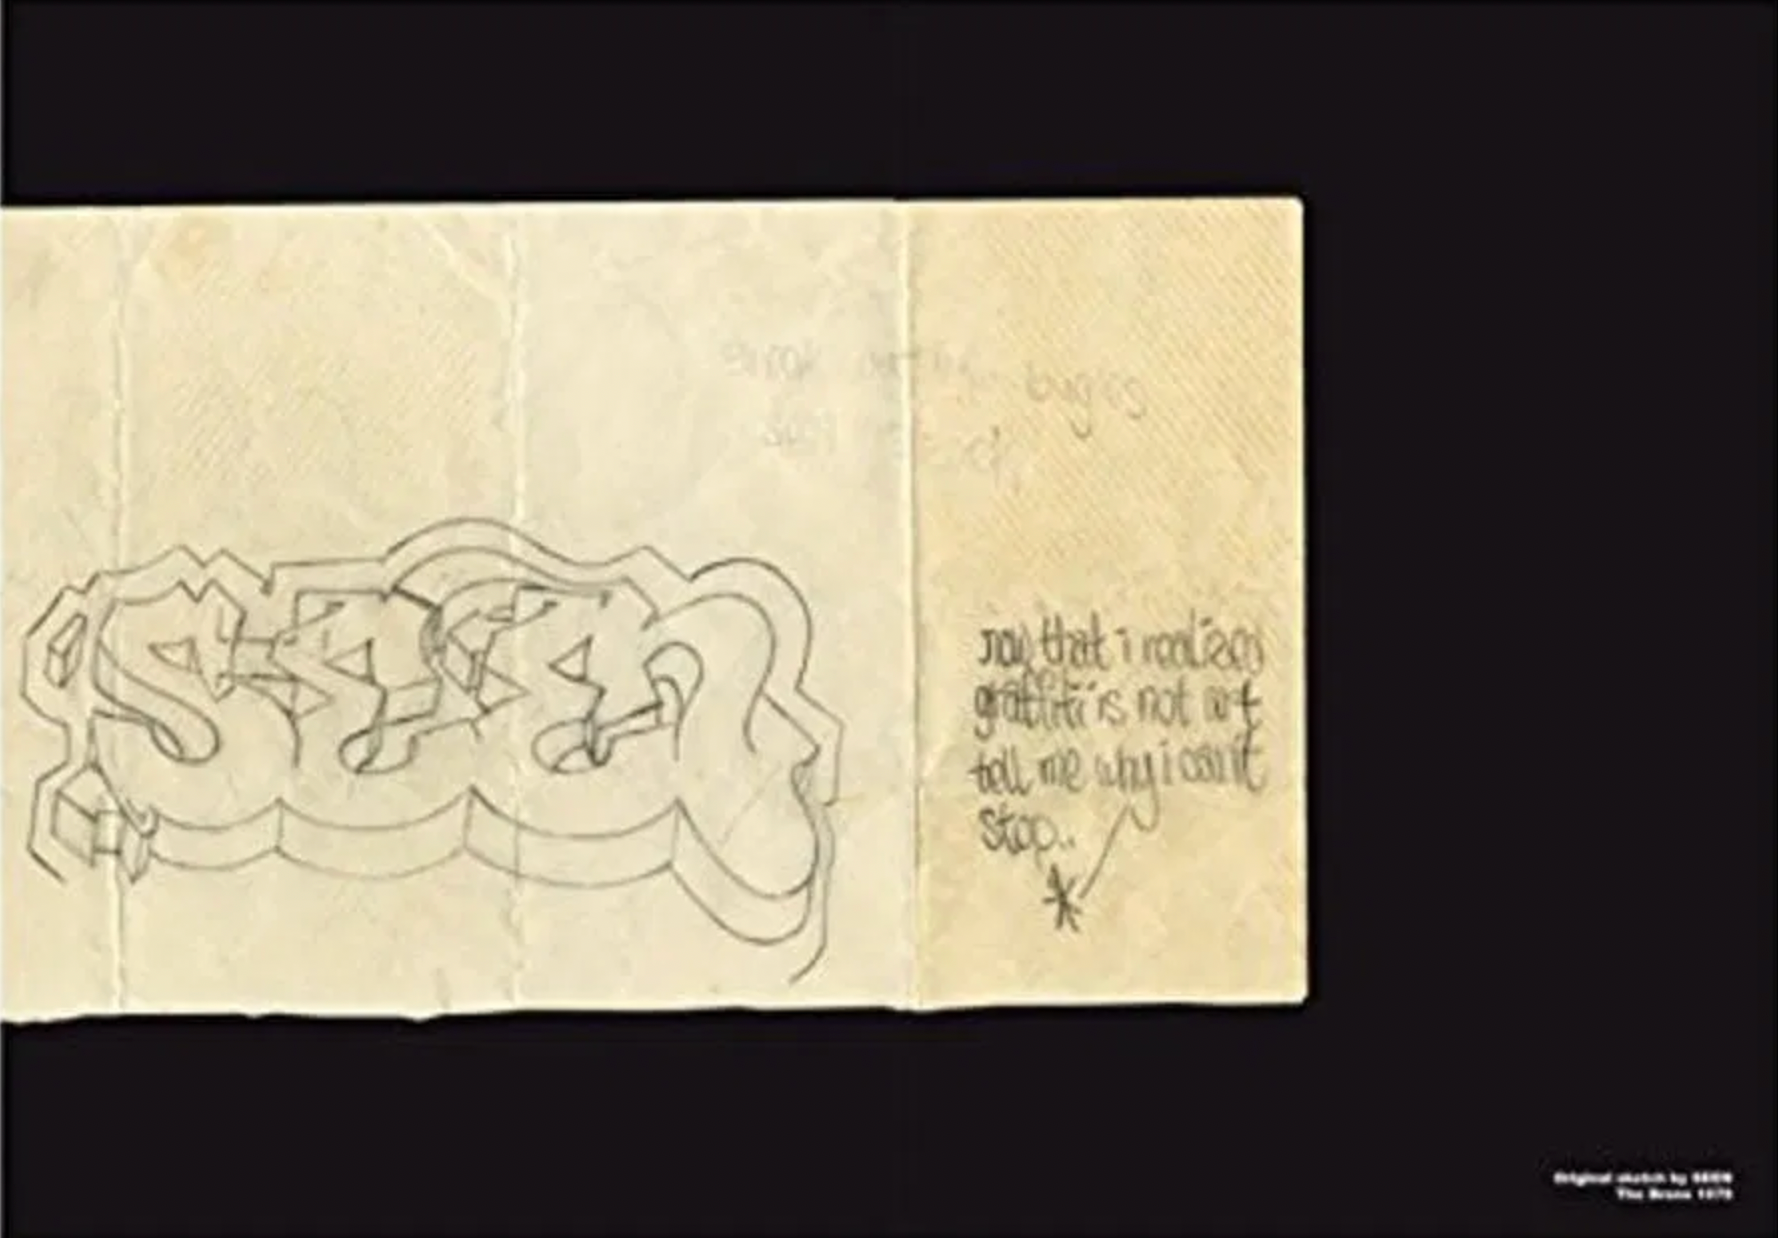 bugies
SEEN
now that i realized
graffiti is not art
tell me why i can't
stop..
Original sketch by SEEN
The Bronx